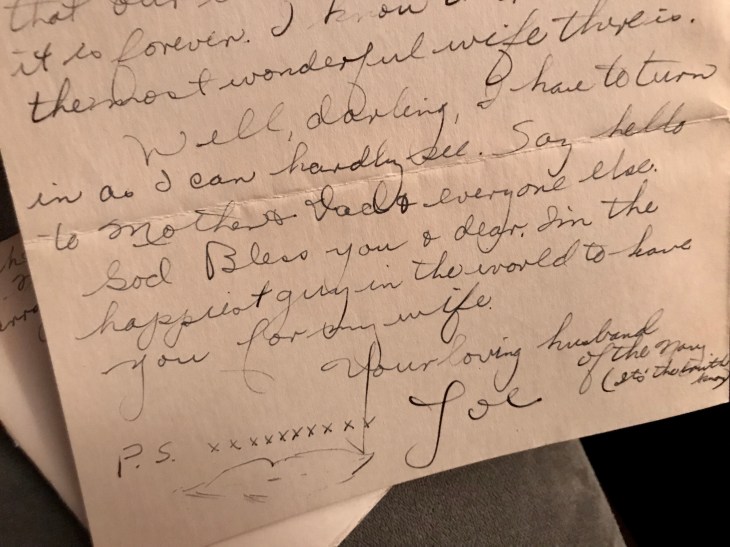 that our
it is forever. I know
the most wonderful wife there is.
Well, darling, I have to turn
in as I can hardly see. Say hello
to Mother & Dad & everyone else.
God Bless you & dear. I'm the
happiest guy in the world to have
you for my wife.
Your loving husband
of the Navy
(It's the truth
Joe
P.S. xxxxxxxxxx